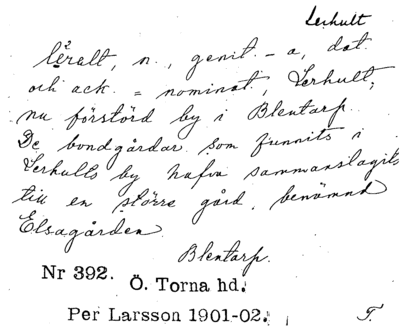 Lerhult
lëralt, n., genit. - a, dat.
och ack. = nominat., Lerhult,
nu förstörd by i Blentarp.
De bondgårdar som funnits i
Lerhults by hafva sammanslagits
till en större gård, benämnd
Elsagården.
Blentarp.
Nr 392.
Ö. Torna hd.
Per Larsson 1901-02.
F.